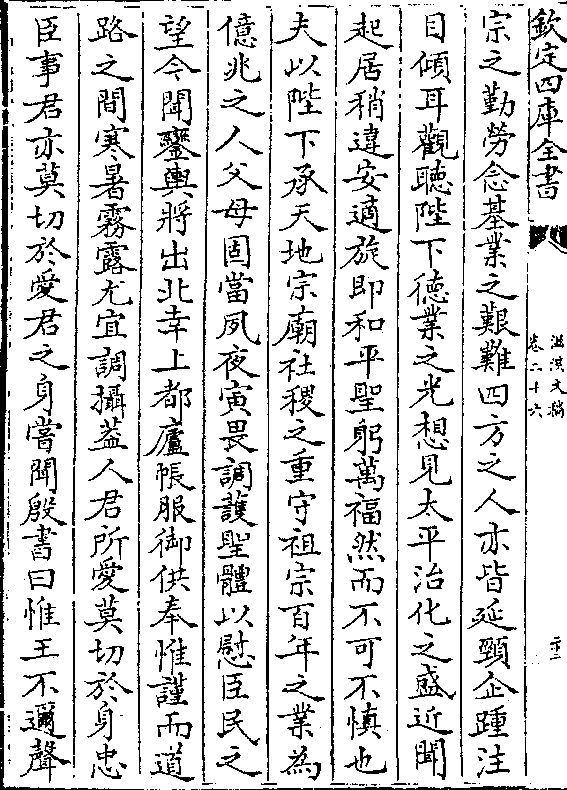 欽定四庫全書
滋溪文稿
卷二十六
宗之勤勞念基業之艱難四方之人亦皆延頸企踵注
目傾耳觀聽陛下德業之光想見太平治化之盛近聞
起居稍違安適旋即和平聖躬萬福然而不可不慎也
夫以陛下承天地宗廟社稷之重守祖宗百年之業為
億兆之人父母固當夙夜寅畏調護聖體以慰臣民之
望今聞鑾輿將出北幸上都廬帳服御供奉惟謹而道
路之間寒暑霧露尤宜調攝蓋人君所愛莫切於身忠
臣事君亦莫切於愛君之身嘗聞殷書曰惟王不邇聲